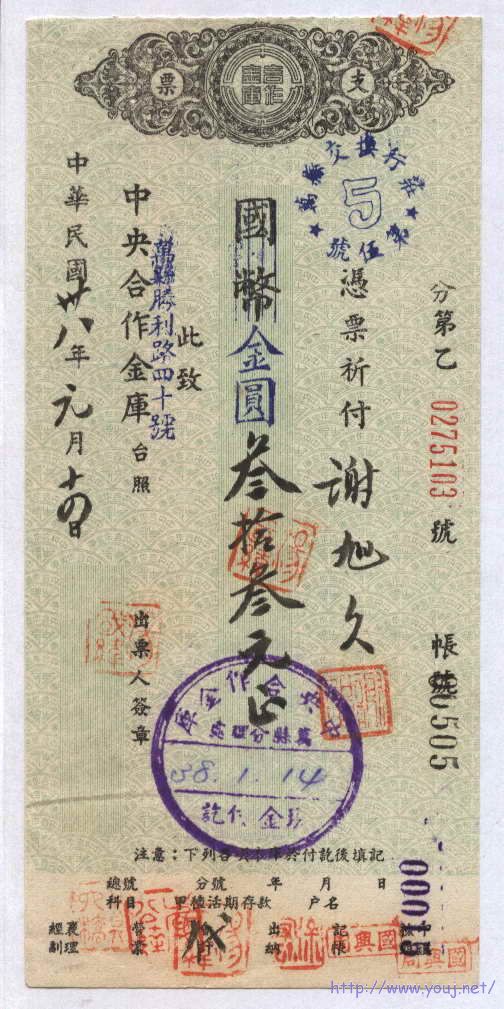 支票
合作金庫
萬縣交換行第
5
伍號
分第乙 0275103 號
帳號 505
憑票祈付 謝旭久
國幣金圓叁拾叁元正
此致
中央合作金庫 台照
萬縣勝利路四十號
中華民國卅八年元月十四日
出票人簽章
中央合作金庫
萬縣分理處
38.1.14
現金付訖
注意：下列各項本庫於付款後填記
總號 分號 年 月 日
科目 甲種活期存款 户名
襄理
經副
營業
出納
記帳
國興周
http://www.youj.net/